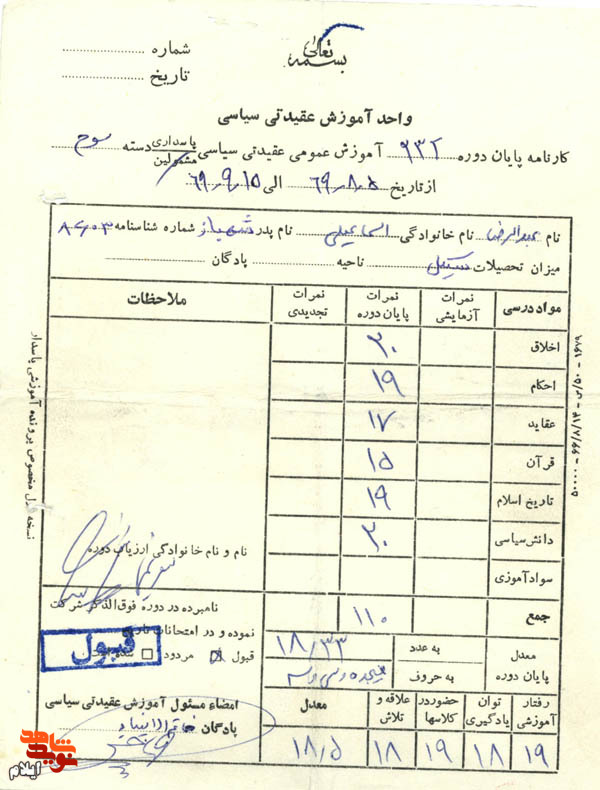 بسمه تعالی
شماره
تاریخ
واحد آموزش عقیدتی سیاسی
کارنامه پایان دوره ۹۳۲ آموزش عمومی عقیدتی سیاسی پاسداری مشمولین دسته سوم
از تاریخ ۶۹٫۸٫۵ الی ۶۹٫۹٫۱۵
نام عبدالرضا نام خانوادگی اسماعیلی نام پدر شهباز شماره شناسنامه ۸۶۰۳
میزان تحصیلات سیکل ناحیه پادگان
مواد درسی نمرات آزمایشی نمرات پایان دوره نمرات تجدیدی ملاحظات
اخلاق ۲۰
احکام ۱۹
عقاید ۱۷
قرآن ۱۵
تاریخ اسلام ۱۹
دانش سیاسی ۲۰
سوادآموزی
جمع ۱۱۰
معدل پایان دوره به عدد ۱۸/۳۳
به حروف هیجده و سی و سه
رفتار آموزشی توان یادگیری حضور در کلاسها علاقه و تلاش معدل
۱۹ ۱۸ ۱۹ ۱۸ ۱۸٫۵
نام و نام خانوادگی ارزیاب دوره
نامبرده در دوره فوق الذکر شرکت
نموده و در امتحانات
قبول مردود
قبول
امضاء مسئول آموزش عقیدتی سیاسی
پادگان
نسخه اول مخصوص پرونده آموزشی پاسدار
۵۰۰۰۰ - ۶۶/۸/۱۴ - ۵۰/ص - ۱۶۷۹
نوید شاهد
ایلام